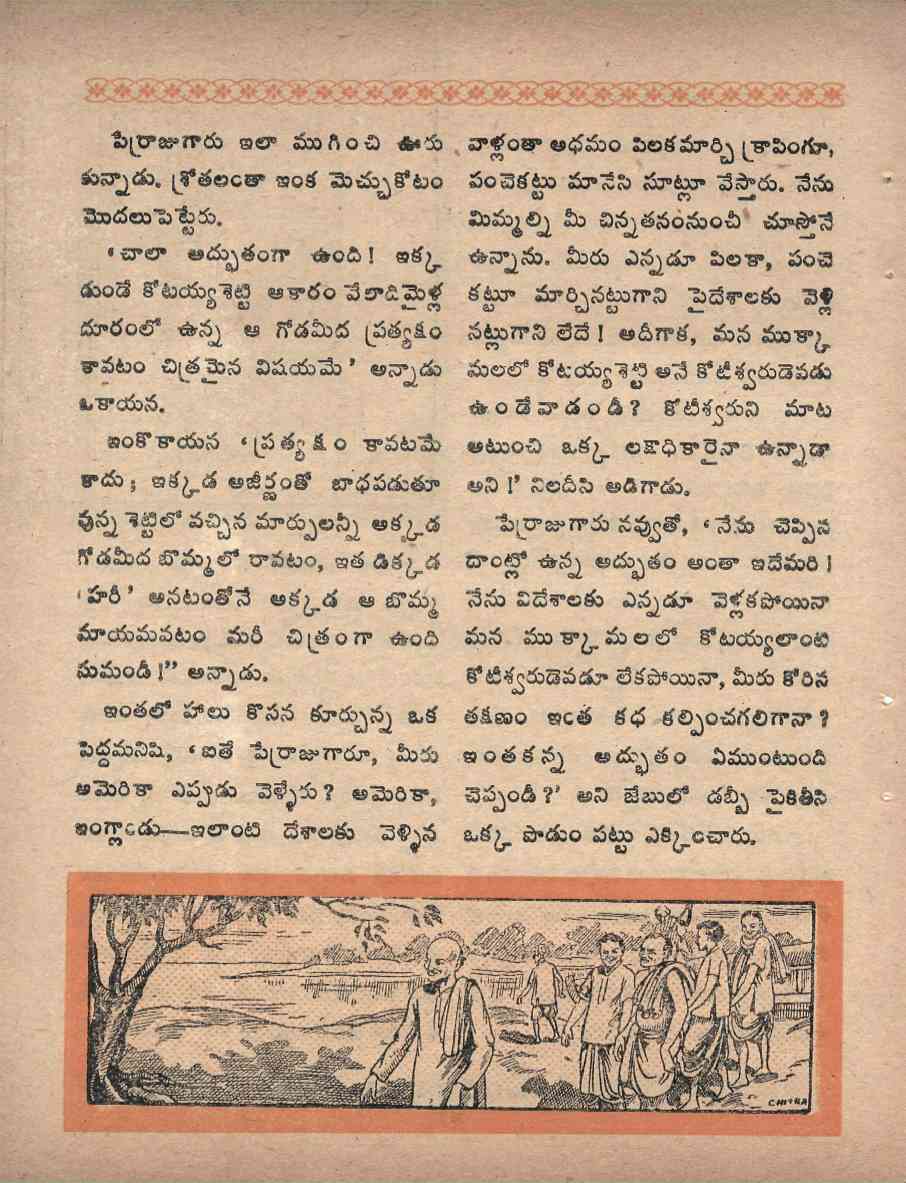 పేర్రాజుగారు ఇలా ముగించి ఊరు
కున్నాడు. శ్రోతలంతా ఇంక మెచ్చుకోటం
మొదలుపెట్టేరు.
‘చాలా అద్భుతంగా ఉంది! ఇక్క
డుండే కోటయ్యశెట్టి ఆకారం వేలాదిమైళ్ల
దూరంలో ఉన్న ఆ గోడమీద ప్రత్యక్షం
కావటం చిత్రమైన విషయమే’ అన్నాడు
ఒకాయన.
ఇంకొకాయన ‘ప్రత్యక్షం కావటమే
కాదు; ఇక్కడ అజీర్ణంతో బాధపడుతూ
వున్న శెట్టిలో వచ్చిన మార్పులన్నీ అక్కడ
గోడమీద బొమ్మలో రావటం, ఇత డిక్కడ
‘హరీ’ అనటంతోనే అక్కడ ఆ బొమ్మ
మాయమవటం మరీ చిత్రంగా ఉంది
సుమండీ!” అన్నాడు.
ఇంతలో హాలు కొసన కూర్చున్న ఒక
పెద్దమనిషి, ‘ఐతే పేర్రాజుగారూ, మీరు
అమెరికా ఎప్పుడు వెళ్ళేరు? అమెరికా,
ఇంగ్లాండు—ఇలాంటి దేశాలకు వెళ్ళిన
వాళ్లంతా అధమం పిలకమార్చి క్రాపింగూ,
పంచెకట్టు మానేసి సూట్లూ వేస్తారు. నేను
మిమ్మల్ని మీ చిన్నతనంనుంచీ చూస్తోనే
ఉన్నాను. మీరు ఎన్నడూ పిలకా, పంచె
కట్టూ మార్చినట్టుగాని పైదేశాలకు వెళ్లి
నట్లుగాని లేదే! అదీగాక, మన ముక్కా
మలలో కోటయ్యశెట్టి అనే కోటీశ్వరుడెవడు
ఉండేవాడండీ? కోటీశ్వరుని మాట
అటుంచి ఒక్క లక్షాధికారైనా ఉన్నాడా
అని!’ నిలదీసి అడిగాడు.
పేర్రాజుగారు నవ్వుతో, ‘నేను చెప్పిన
దాంట్లో ఉన్న అద్భుతం అంతా ఇదేమరి!
నేను విదేశాలకు ఎన్నడూ వెళ్లకపోయినా
మన ముక్కామలలో కోటయ్యలాంటి
కోటీశ్వరుడెవడూ లేకపోయినా, మీరు కోరిన
తక్షణం ఇంత కధ కల్పించగలిగానా?
ఇంతకన్న అద్భుతం ఏముంటుంది
చెప్పండీ?’ అని జేబులో డబ్బీ పైకితీసి
ఒక్క పొడుం పట్టు ఎక్కించారు.
CHITRA